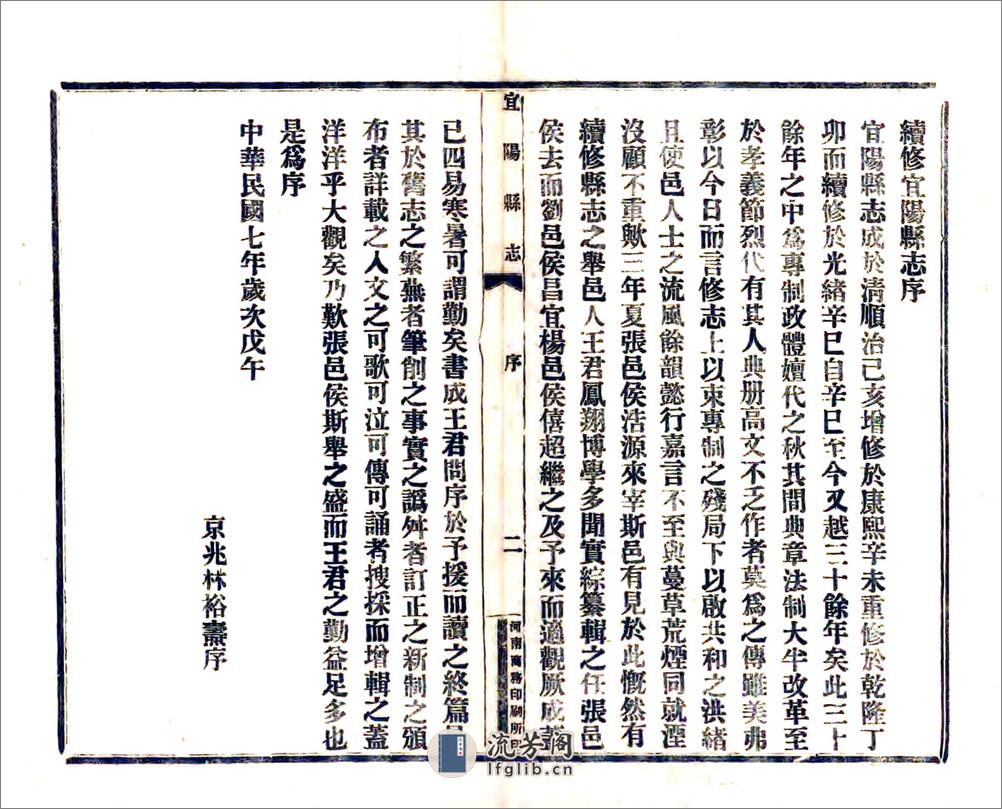 續修宜陽縣志序
宜陽縣志成於清順治己亥增修於康熙辛未重修於乾隆丁
卯而續修於光緒辛巳自辛巳至今又越三十餘年矣此三十
餘年之中爲專制政體嬗代之秋其間典章法制大半改革至
於孝義節烈代有其人典册高文不乏作者莫爲之傳雖美弗
彰以今日而言修志上以束專制之殘局下以啟共和之洪緒
且使邑人士之流風餘韻懿行嘉言不至與蔓草荒煙同就湮
沒顧不重歟三年夏張邑侯浩源來宰斯邑有見於此慨然有
續修縣志之舉邑人王君鳳翔博學多聞實綜纂輯之任張邑
侯去而劉邑侯昌宜楊邑侯僖超繼之及予來而適觀厥成蓋
宜陽縣志
序
二
河南商務印刷所印
已四易寒暑可謂勤矣書成王君問序於予援而讀之終篇
其於舊志之繁蕪者筆削之事實之譌舛者訂正之新制之頒
布者詳載之人文之可歌可泣可傳可誦者搜採而增輯之蓋
洋洋乎大觀矣乃歎張邑侯斯舉之盛而王君之勤益足多也
是爲序
中華民國七年歲次戊午
京兆林裕燾序
流芳閣
lfglib.cn